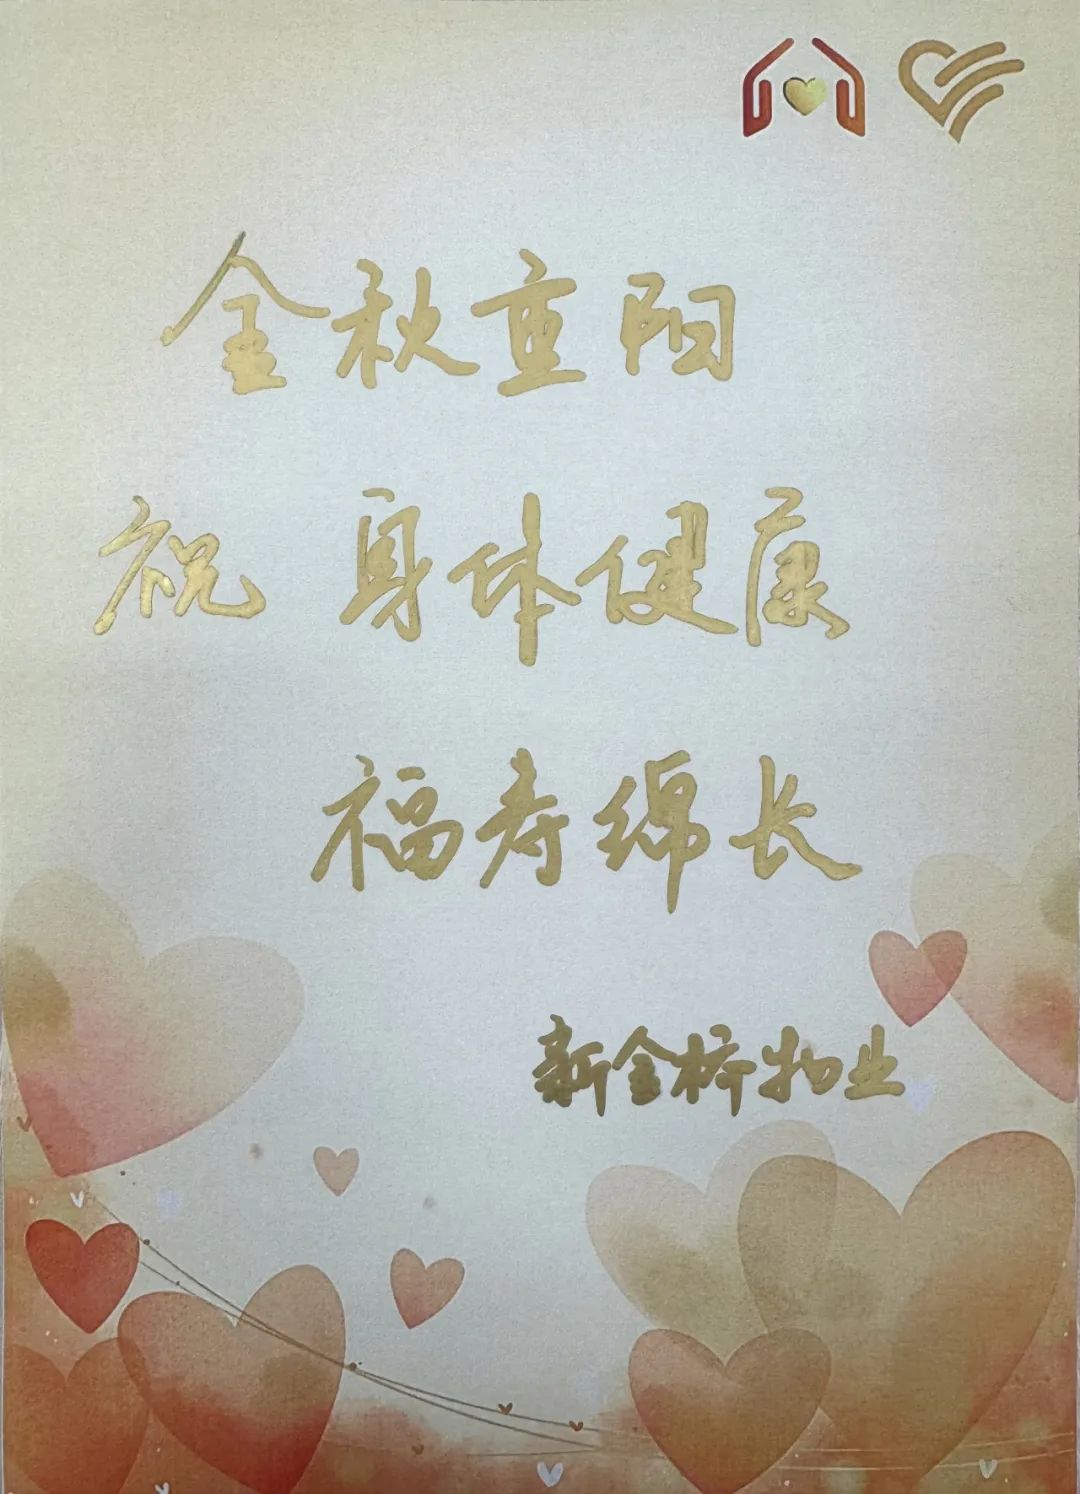 金秋重阳
祝 身体健康
福寿绵长
新金桥物业